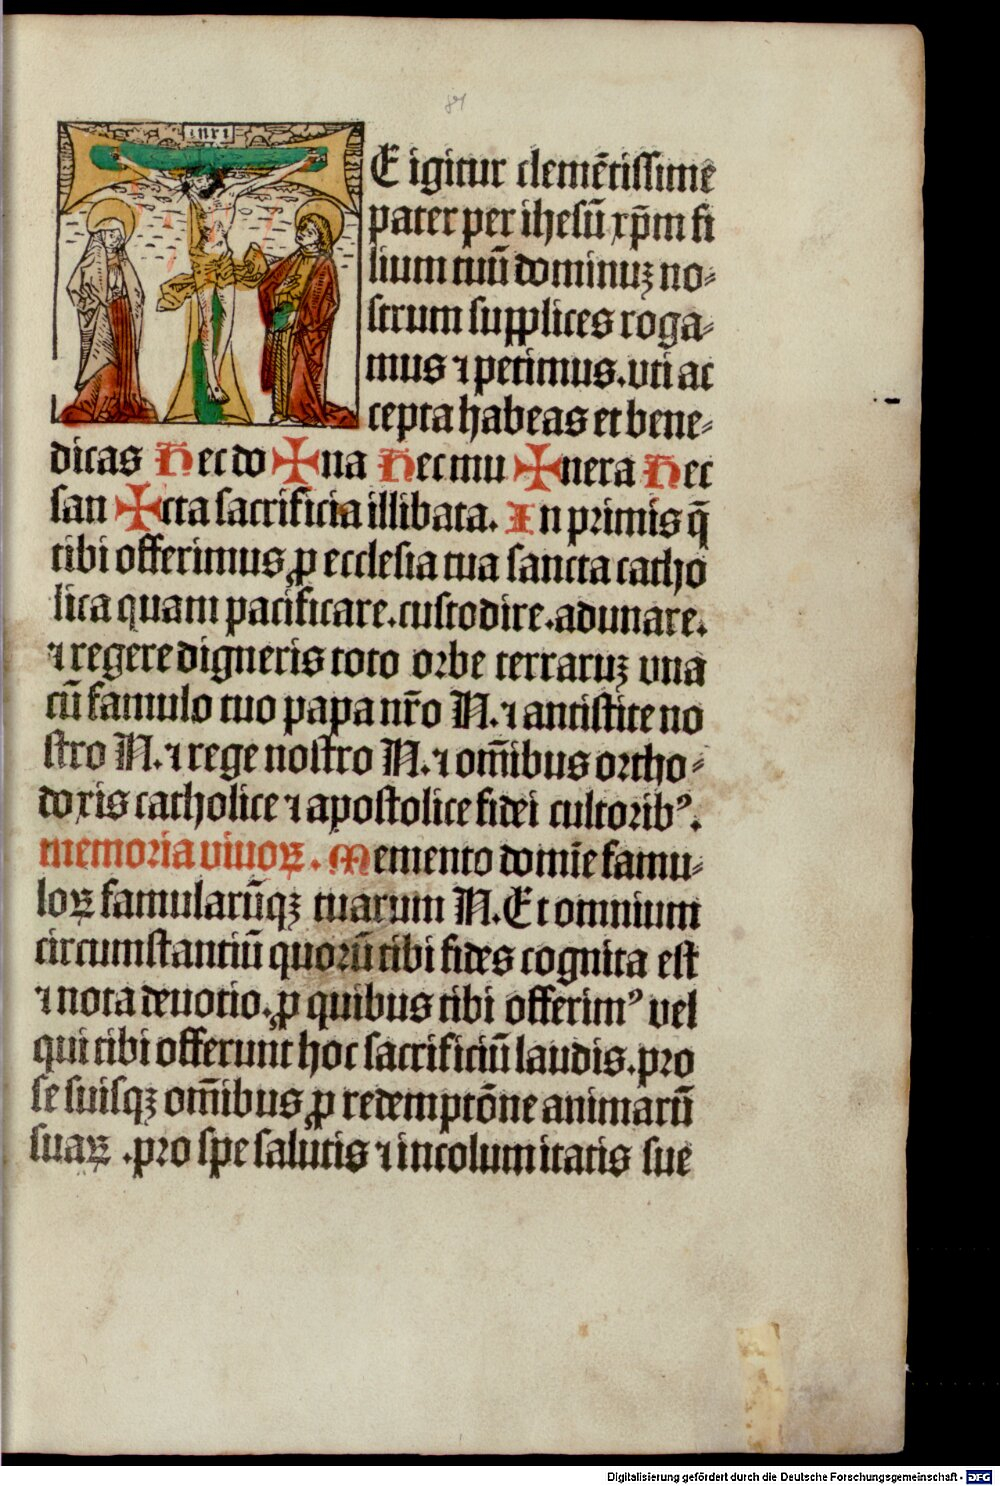 81
inri
E igitur clemḗtissime
pater per ihesū xp̄m fi
lium tuū dominuʒ no⸗
strum supplices roga⸗
mus ⁊ petimus. uti ac
cepta habeas et bene⸗
dicas Hec do ✠ na Hec mu ✠ nera Hec
san ✠ cta sacrificia illibata. In primis q̄
tibi offerimus ꝓ ecclesia tua sancta catho
lica quam pacificare. custodire. adunare.
⁊ regere digneris toto orbe terraruʒ una
cū famulo tuo papa nr̄o N. ⁊ antistite no
stro N. ⁊ rege nostro N. ⁊ om̄ibus ortho⸗
doxis catholice ⁊ apostolice fidei cultorib᾽.
memoria uiuoꝝ. Memento domīe famu⸗
loꝝ famularūqʒ tuarum N. Et omnium
circumstantiū quorū tibi fides cognita est
⁊ nota deuotio. ꝓ quibus tibi offerim᾽ uel
qui tibi offerunt hoc sacrificiū laudis. pro
se suisqʒ om̄ibus ꝓ redemptōne animarū
suaꝝ. pro spe salutis ⁊ incolumitatis sue
Digitalisierung gefördert durch die Deutsche Forschungsgemeinschaft - DFG